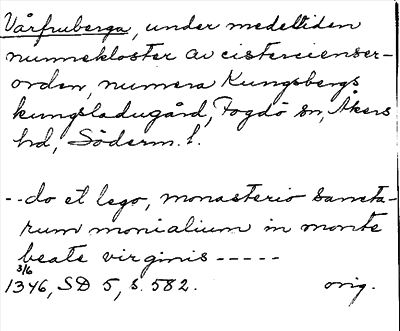 Vårfruberga, under medeltiden
nunnekloster av cistercienser-
orden, numera Kungsbergs
kungsladugård, Fogdö sn, Åkers
hd, Söderm. l.
--do et lego, monasterio sancta-
rum monialium in monte
beate virginis -----
3/6
1346, SD 5, s. 582. orig.